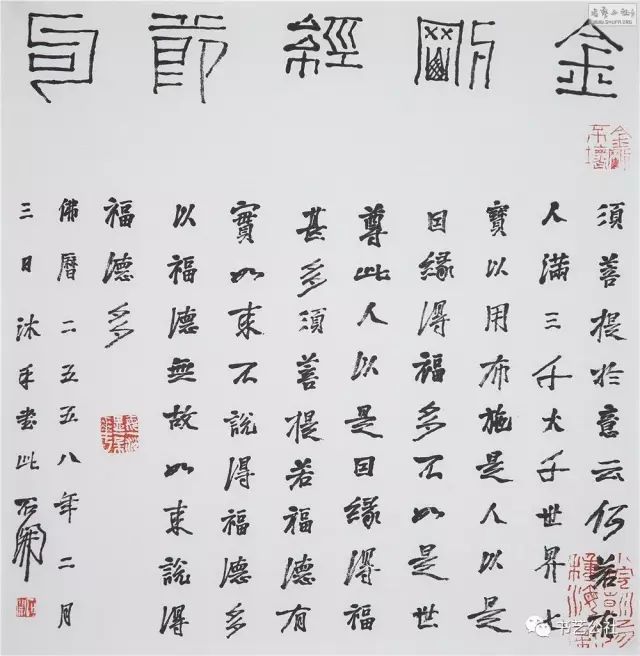 金剛經節
金剛不壞
須菩提於意云何若有
人滿三千大千世界七
寶以用布施是人以是
因緣得福多不如是世
尊此人以是因緣得福
甚多須菩提若福德有
實如來不說得福德多
以福德無故如來說得
福德多
佛曆二五五八年二月
三日沐手書此石開
书艺公社
WWW.SHUFA.ORG